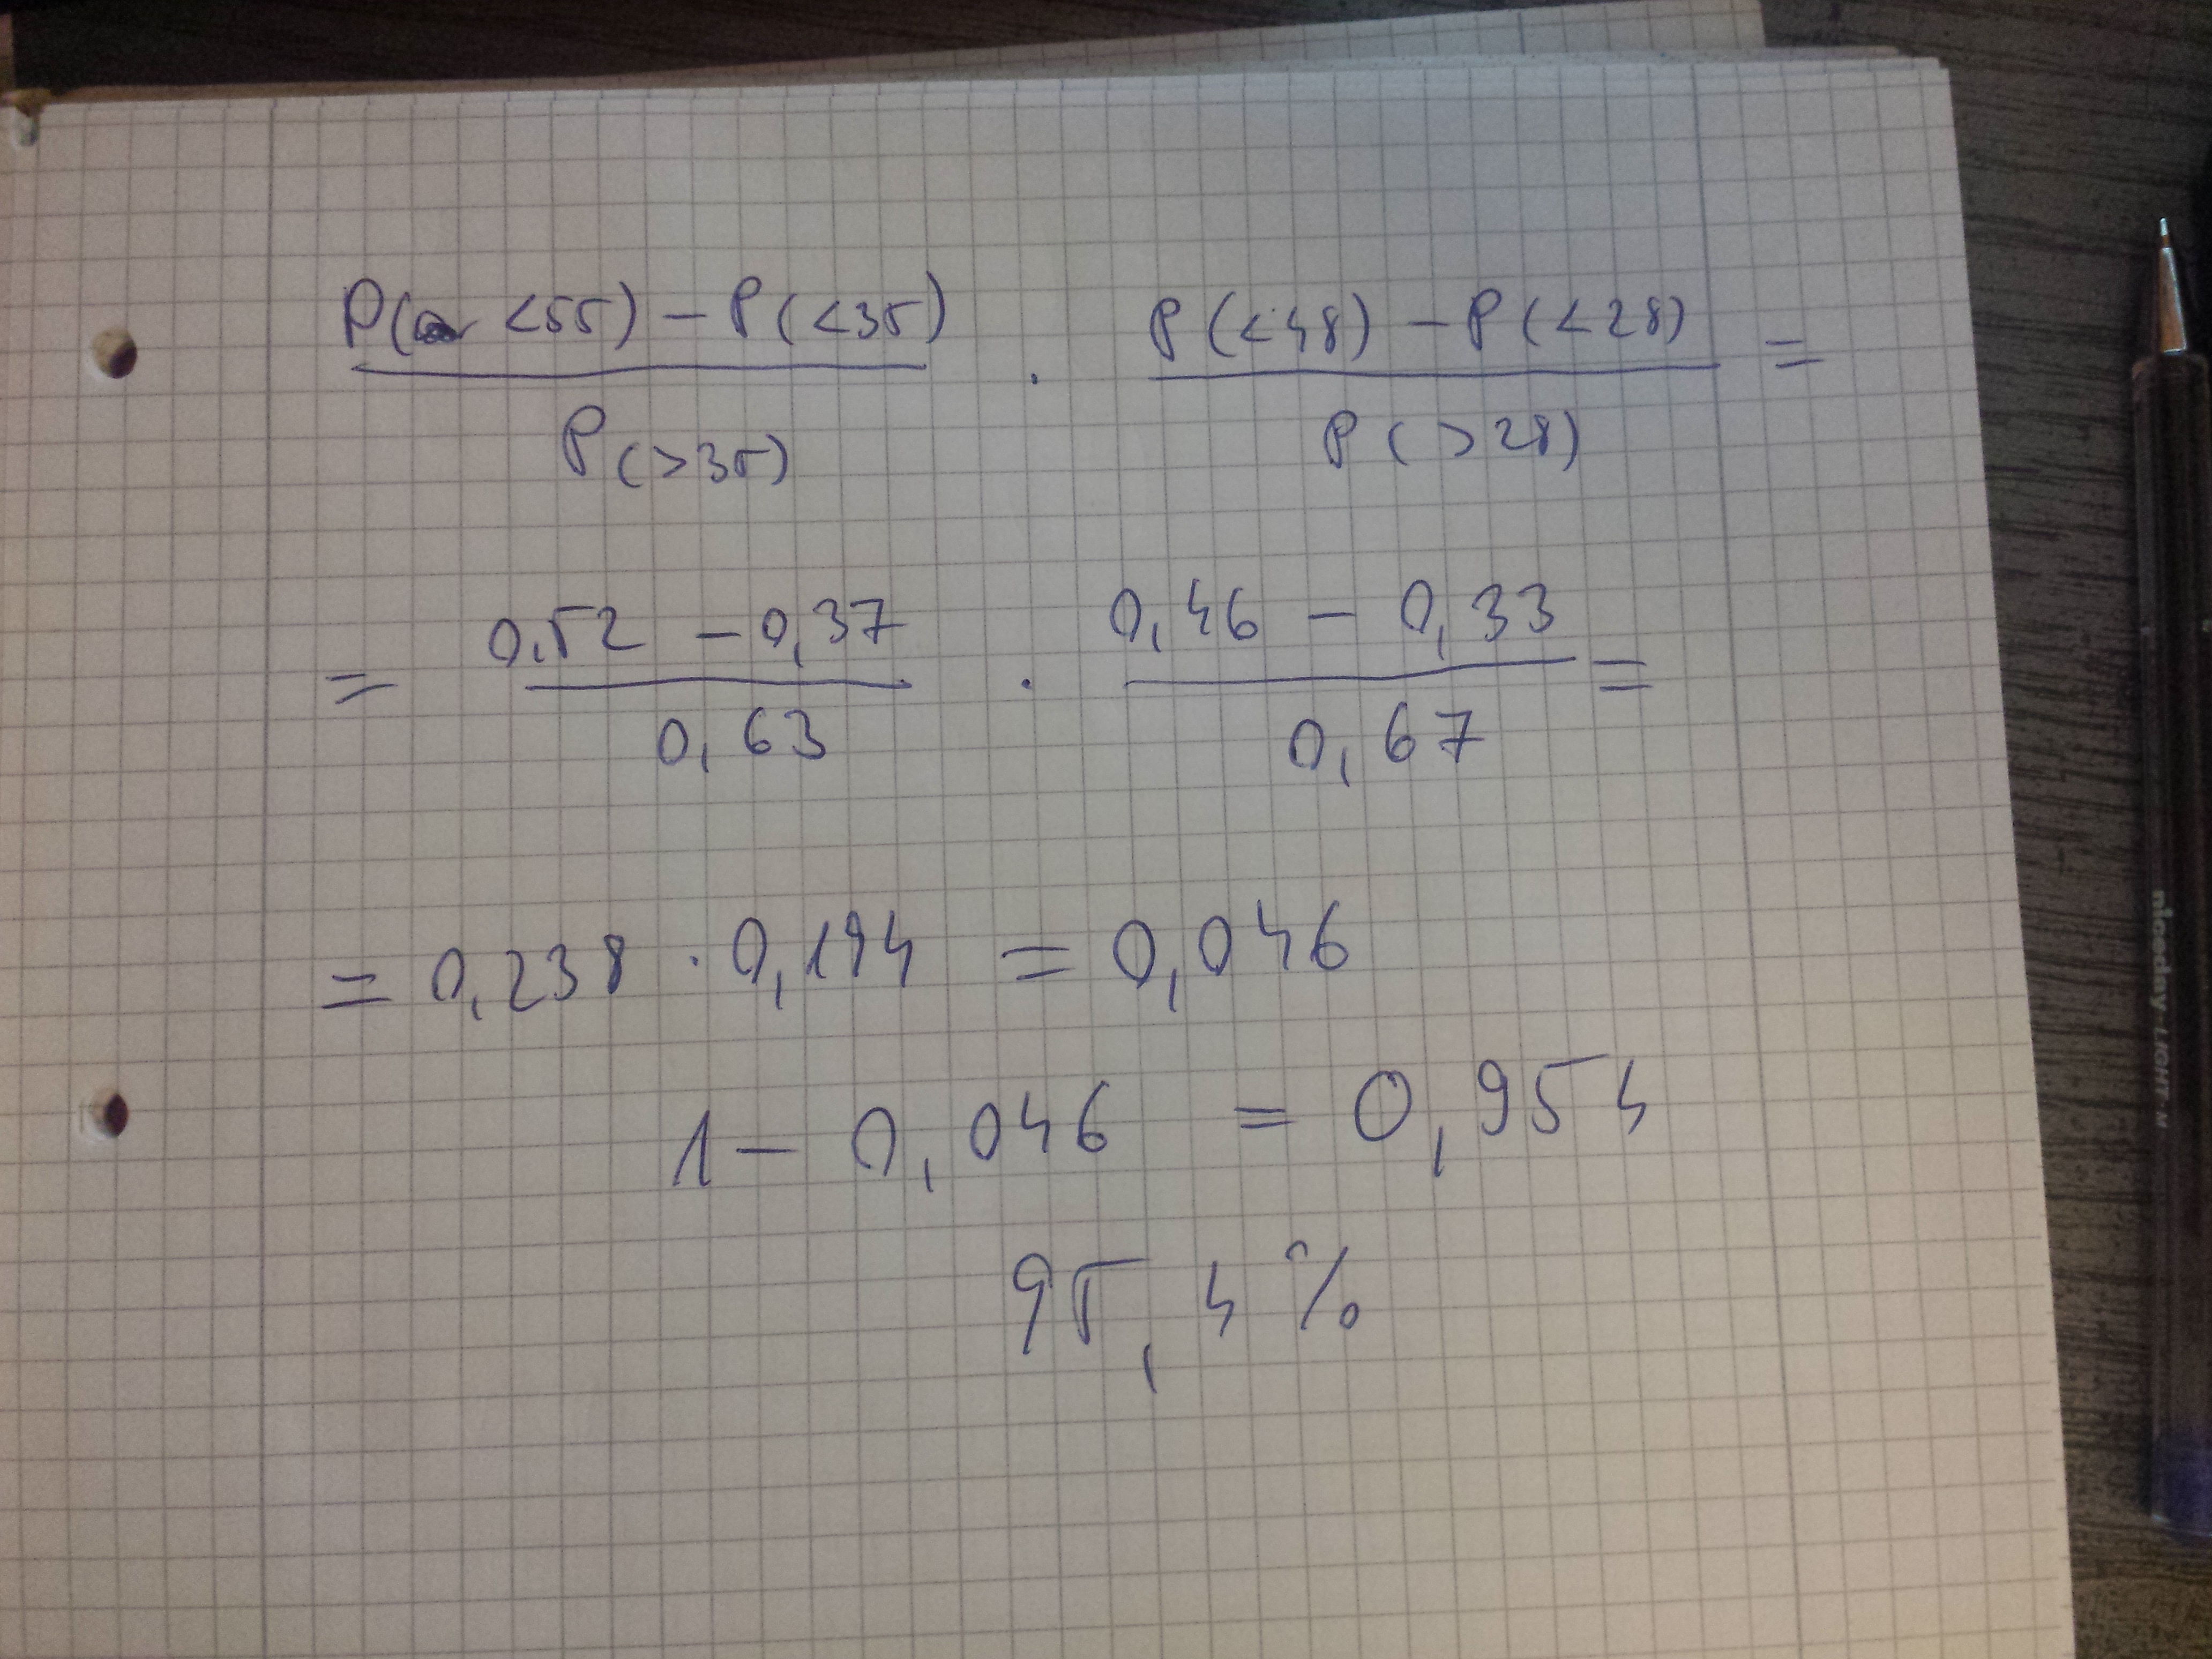 P( < 55) - P(<35) / P(>35) · P(<48) - P(<28) / P(>28) =
= 0,52 - 0,37 / 0,63 · 0,46 - 0,33 / 0,67 =
= 0,238 · 0,194 = 0,046
1 - 0,046 = 0,954
95,4 %
niceday LIGHT M